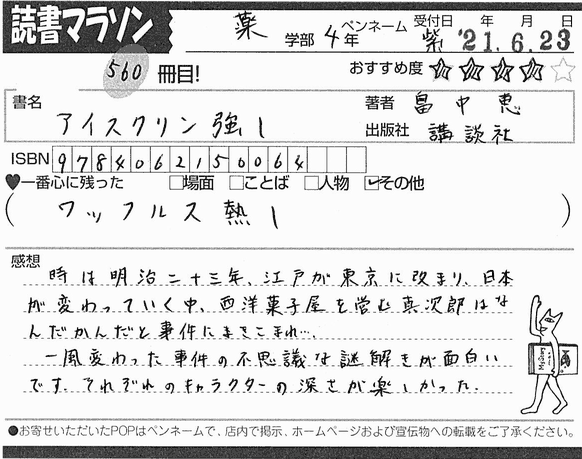 読書マラソン
薬 学部 4年 ペンネーム 紫 受付日 '21年 6月 23日
560 冊目! おすすめ度 ★★★★☆
書名 アイスクリン強し 著者 畠中恵
出版社 講談社
ISBN 9784062150064
♥一番心に残った □場面 □ことば □人物 ☑その他
(ワッフルス熱し)
感想
時は明治二十三年、江戸が東京に改まり、日本
が変わっていく中、西洋菓子屋を営む真次郎はな
んだかんだと事件にまきこまれ…。
一風変わった事件の不思議な謎解きが面白い
です。それぞれのキャラクターの深さが楽しかった。
●お寄せいただいたPOPはペンネームで、店内で掲示、ホームページおよび宣伝物への転載をご了承ください。